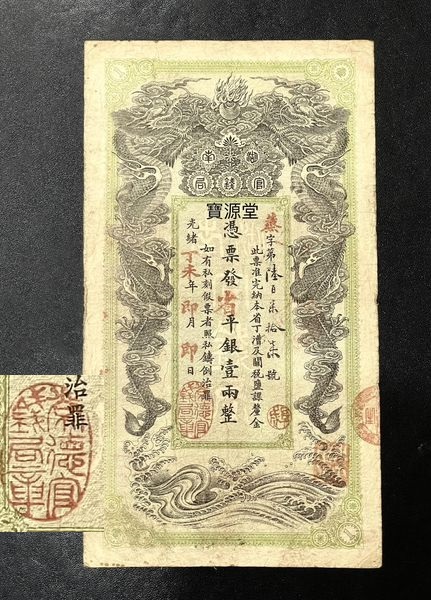 湖南
官錢局
寶源堂
字第陸百柒拾柒號
此票准完納本省丁漕及關稅鹽課釐金
憑票發省平銀壹兩整
如有私刻假票者照私鑄例治罪
光緒丁未年印月印日
治罪
常德官
錢局章